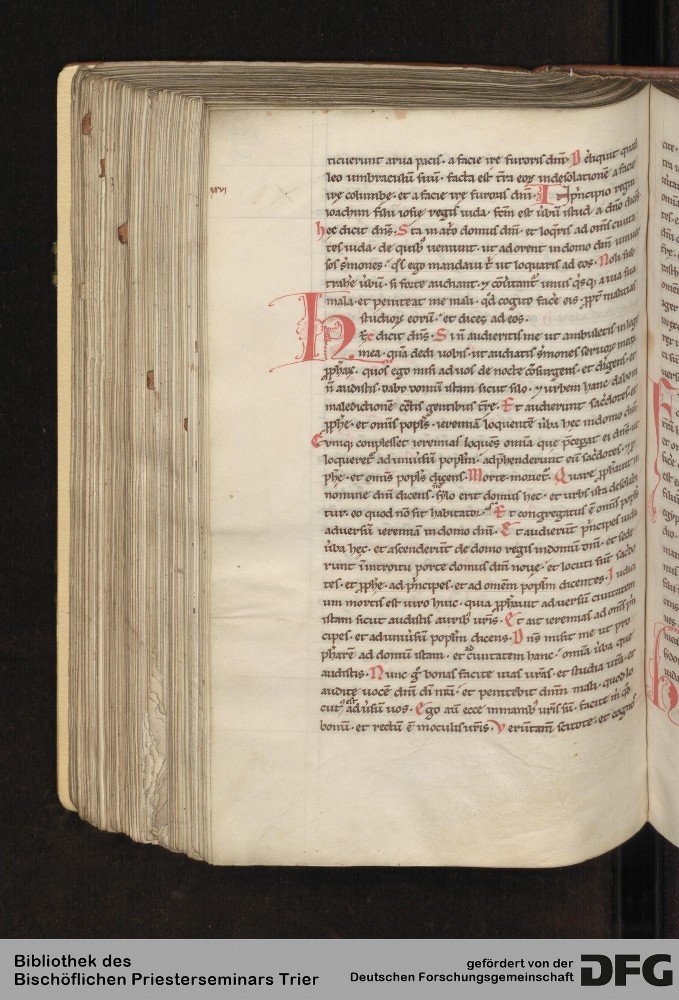 ticuerunt arua pacis· a facie ire furoris dnī· D eliquit quasi
leo umbraculū suū· facta est tr̄a eoꝝ in desolationē a facie
ire columbe· et a facie ire furoris dnī· In principio regni
xxvi
ioachim filii iosie regis iuda· fctm̄ est ūbū istud a dn̄o dicēs
hec dicit dn̄s· Sta in atrio domus dnī· et loq̄ris ad om̄s ciuita
tes iuda· de quibꝰ ueniunt· ut adorent in domo dnī uniuer
sos sermones· q̄s ego mandaui t̄· ut loquaris ad eos· Noli sub
trahe ūbū· si forte audiant· ⁊ cōūtant̄ unus qsq; a uia sua
mala· et peniteat me mali· qd̄ cogito facē eis· ꝓpt̄ malicias
studioꝝ eorū· et dices ad eos·
Hec dicit dn̄s· Si n̄ audieritis me ut ambuletis in lege
mea· quā dedi uobis· ut audiatis s̄mones seruoꝝ meoꝝ
ꝓphaꝝ· quos ego misi ad uos de nocte cōsurgens· et dirigens· et
n̄ audistis· dabo domū istam sicut silo· ⁊ urbem hanc dabo in
maledictionē cūctis gentibus tr̄e· Et audierunt sac̄dotes· et
ꝓphe· et omīs popls̄· ieremiā loquentē ūba hec in domo dnī·
Cumq; conplesset ieremias loquēs omīa que p̄cepat ei dn̄s· ut
loqueret̄ ad uniūsū poplm̄· adp̄henderunt eū sac̄dotes· ⁊ ꝓ
phe· et omīs popls̄ dicens· Morte moriet̄· Quare ꝓphauit in
nomine dnī dicens· silo erit domus hec· et urbs ista desolabi
tur· eo quod nō sit habitator· Et congregatus ē omīs popls̄
aduersū ieremiā in domo dnī· Et audierūt p̄ncipes iuda
ūba hec· et ascenderūt de domo regis in domū dnī· et sede
runt in introitu porte domus dnī noue· et locuti sūt sac̄do
tes· et ꝓphe· ad p̄ncipes· et ad omēm poplm̄ dicentes· Iudici
um mortis est uiro huic· quia ꝓphauit aduersū ciuitatem
istam sicut audistis auribꝰ ur̄is· Et ait ieremias ad om̄s p̄n
cipes· et ad uniūsū poplm̄ dicens· Dn̄s misit me ut pro
phārē ad domū istam· et ad ciuitatem hanc· omīa ūba que
audistis· Nunc g̊ bonas facite uias ur̄as· et studia ur̄a· et
audite uocē dnī dī nr̄i· et penitebit dnm̄ mali· quod lo
cut᷒ est aduersū uos· Ego aū ecce in manibꝰ ur̄is sū· facite m̄ qd̄
bonū· et rectū ē in oculis ur̄is· Verūtam̄ scitote· et cogno
Bibliothek des
Bischöflichen Priesterseminars Trier
gefördert von der
Deutschen Forschungsgemeinschaft
DFG